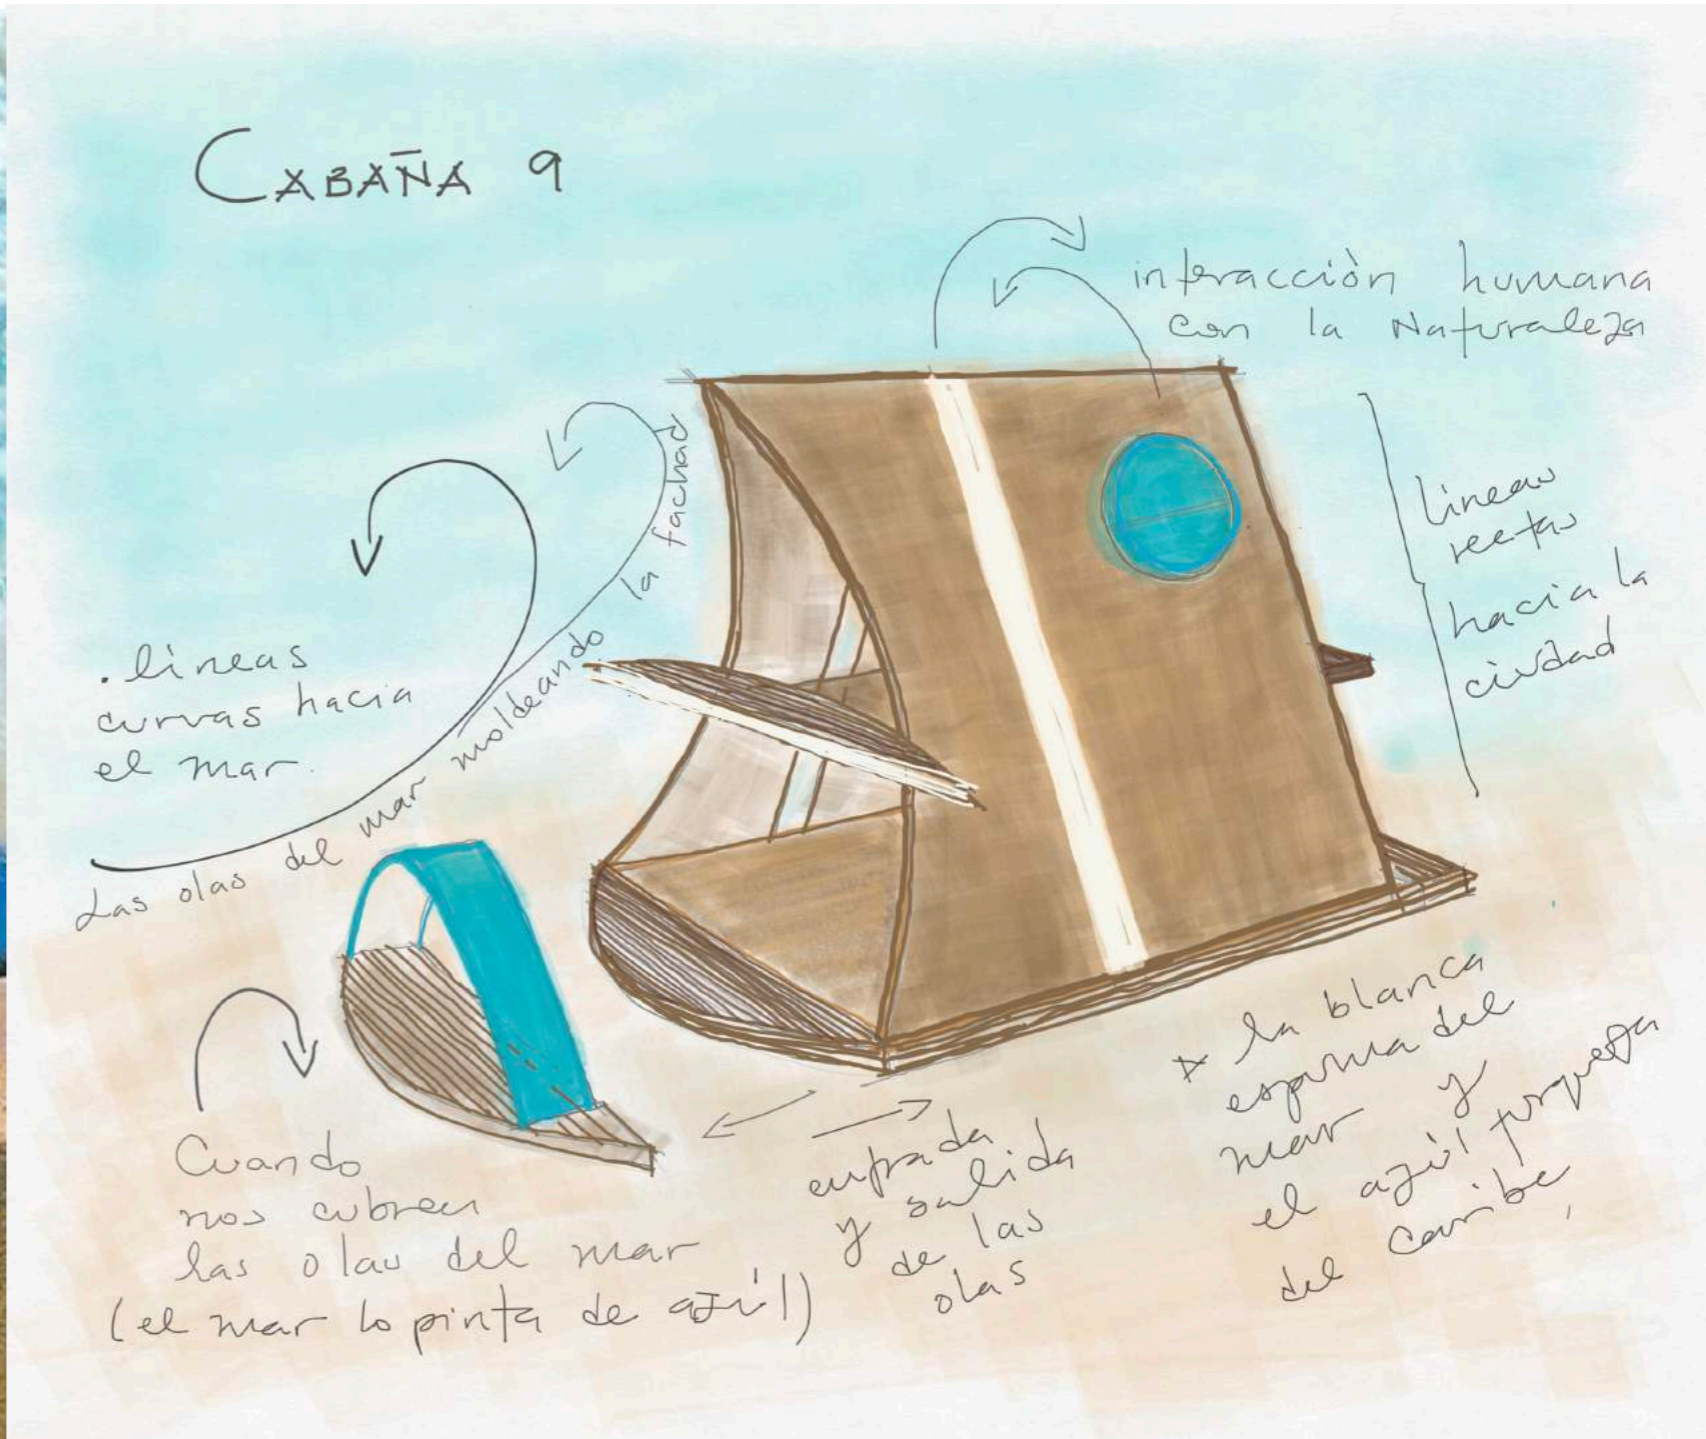 CABAÑA 9
interacción humana
con la Naturaleza
lineas
rectas
hacia la
ciudad
. lineas
curvas hacia
el mar.
Las olas del mar moldeando la fachad
Cuando
nos cubren
las olas del mar
(el mar lo pinta de azúl)
entrada
y salida
de las
olas
* la blanca
espuma del
mar y
el azúl turquesa
del caribe,